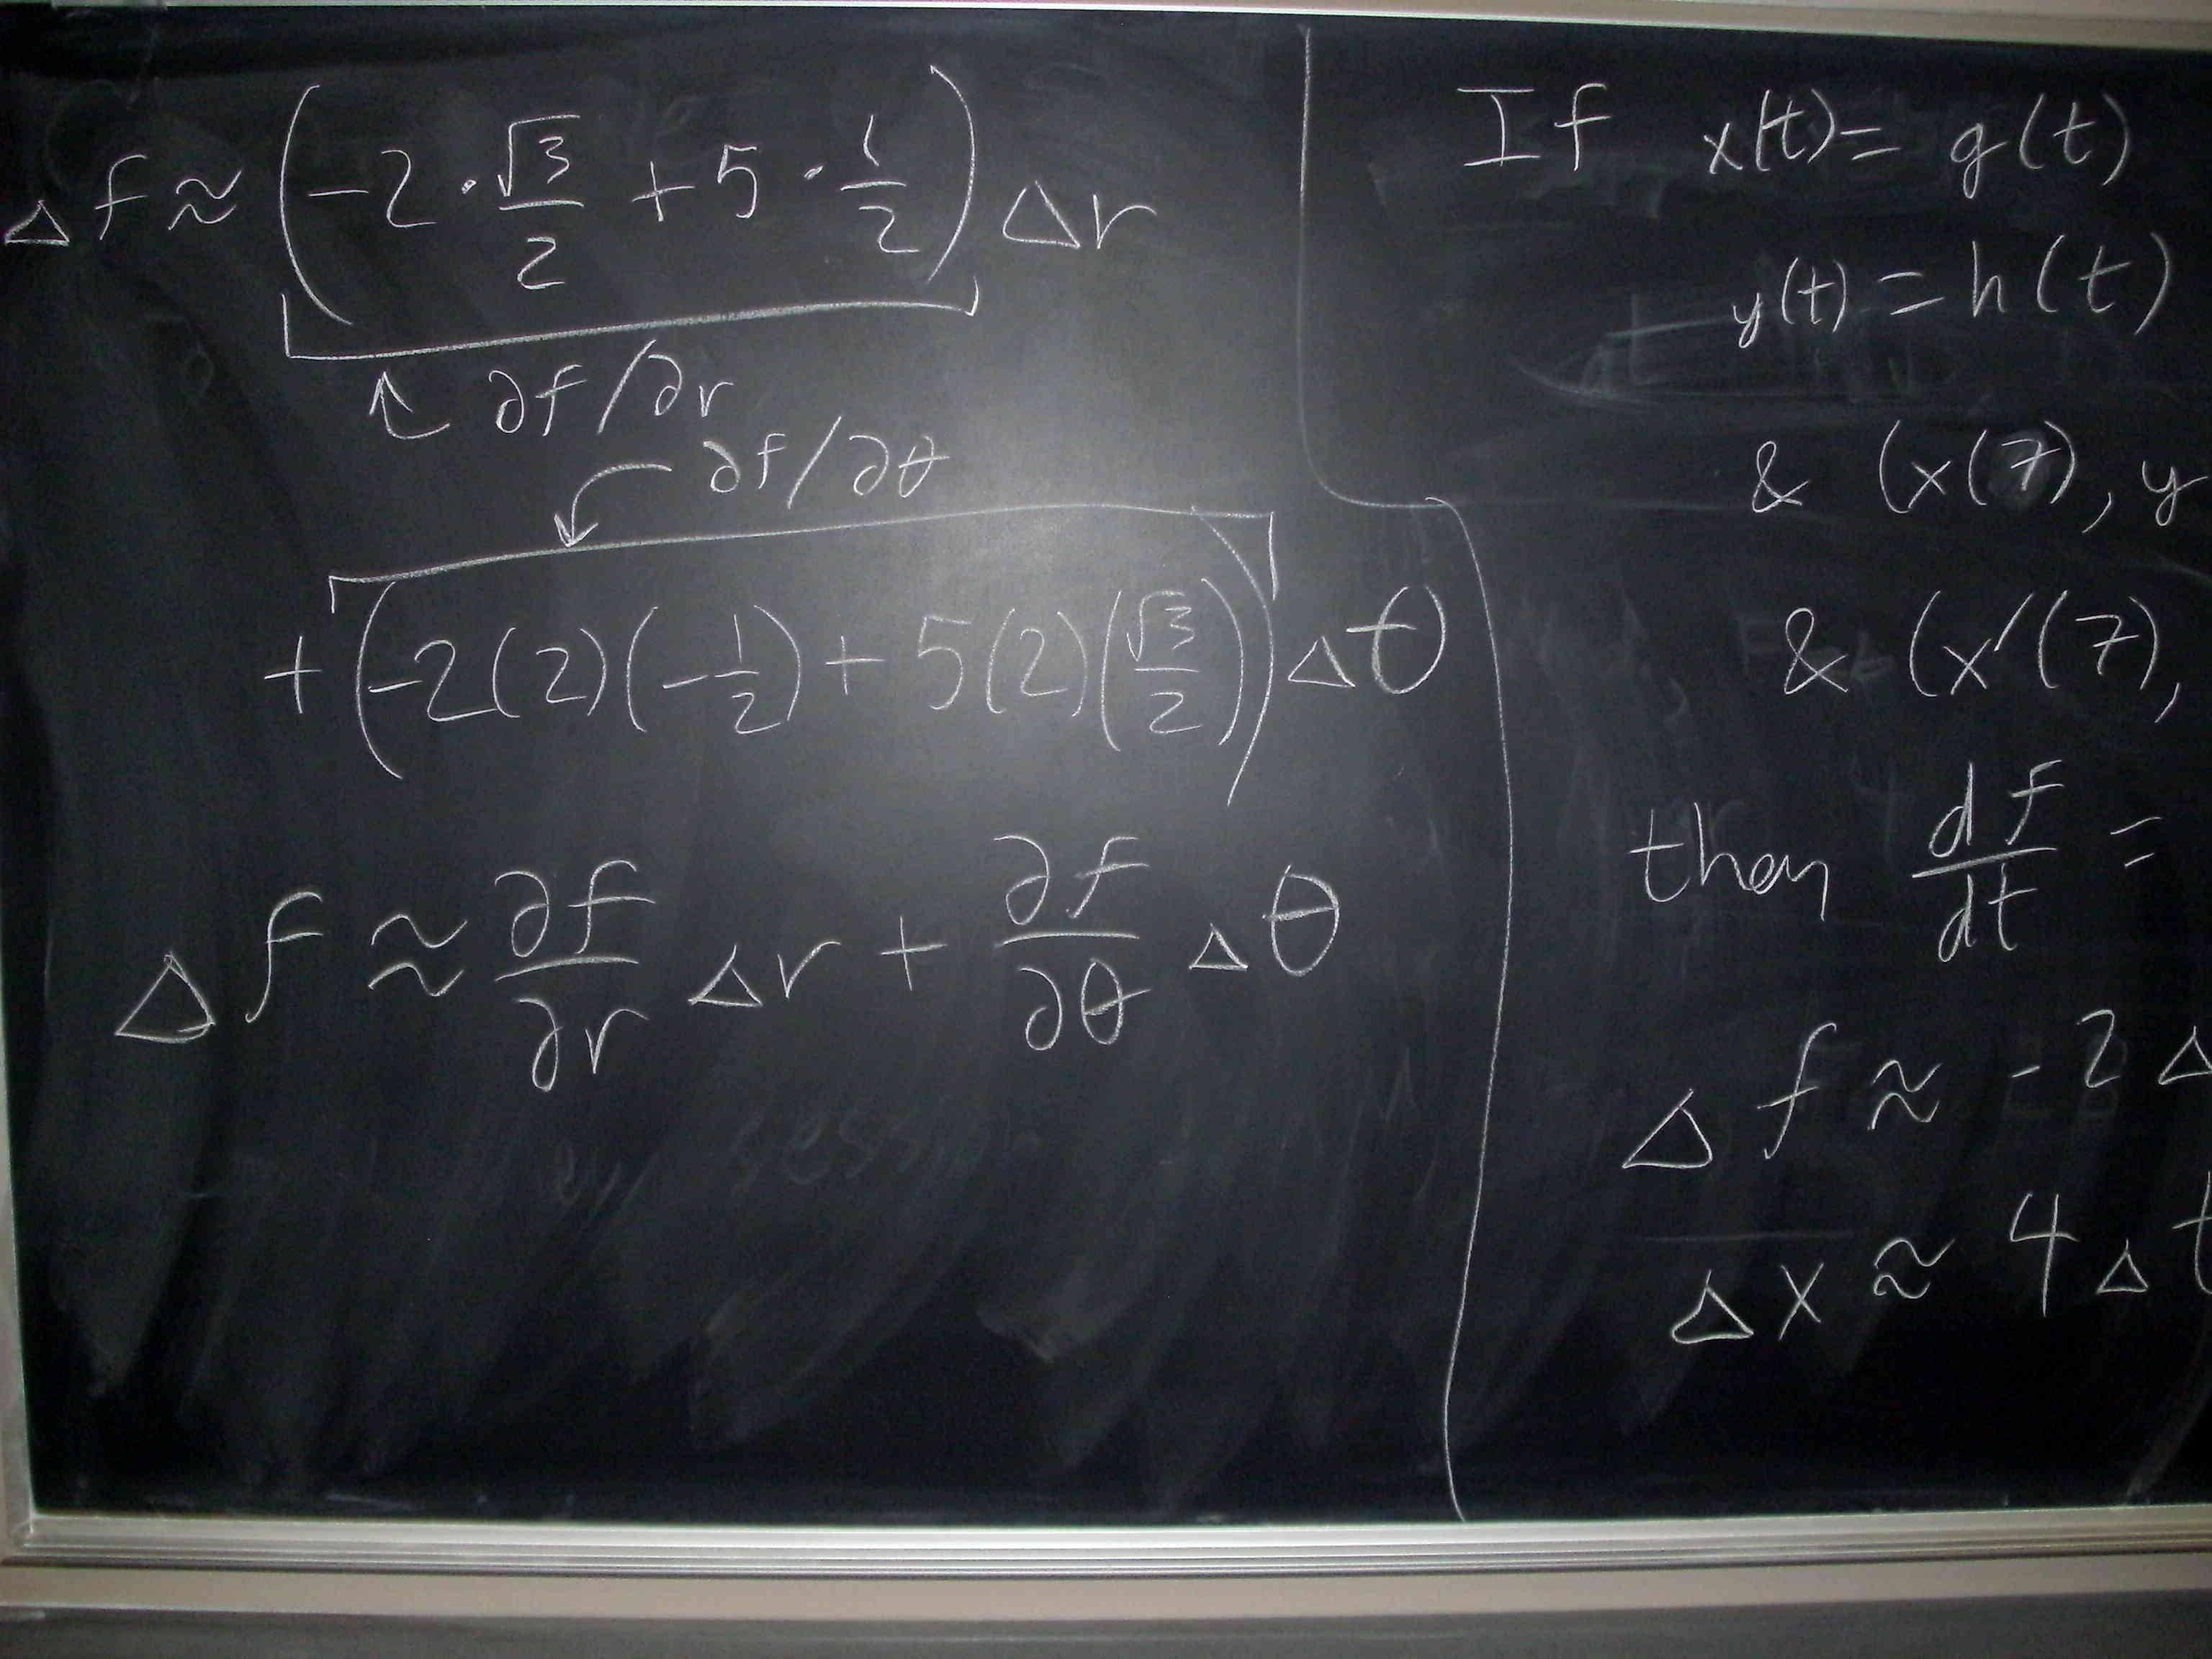 Δf ≈ (-2 · √3/2 + 5 · 1/2) Δr
↑ ∂f/∂r
∂f/∂θ
+ (-2(2)(-1/2) + 5(2)(√3/2)) Δθ
Δf ≈ ∂f/∂r Δr + ∂f/∂θ Δθ
If x(t) = g(t)
y(t) = h(t)
& (x(7), y
& (x'(7),
then df/dt =
Δf ≈ -2 Δ
Δx ≈ 4 Δt